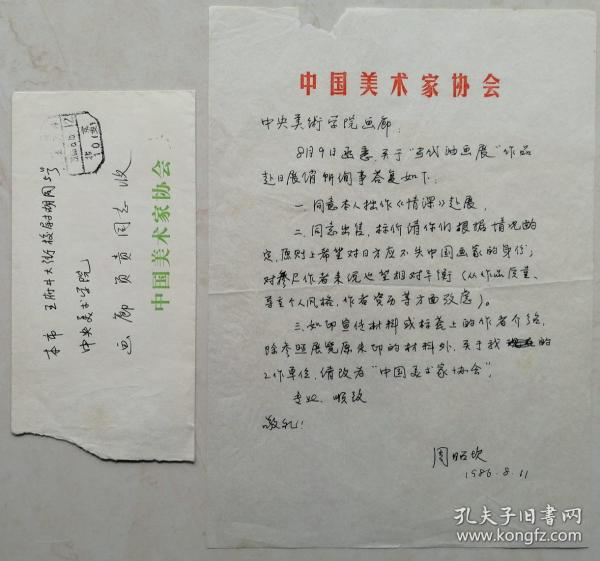 中国美术家协会
中央美術学院画廊:
8月9日函悉,关于"当代油画展"作品
赴日展销所询事答复如下:
一.同意本人拙作《情深》赴展,
二.同意出售,标价请你们根据情况酌
定,原则上希望对日方应不失中国画家的身份;
对参展作者来说也望相对平衡(从作品质量、
尊重个人风格,作者资历等方面考虑)。
三.如印宣传材料或标签上的作者介绍,
除参照展览原来印的材料外,关于我的
工作单位,请改为"中国美术家协会",
专此,顺致
敬礼!
周昭坎
1986.8.11
本市 王府井大街校尉胡同5号
中央美术学院
画廊 负责同志收
中国美术家协会
孔夫子旧书网
www.kongfz.com